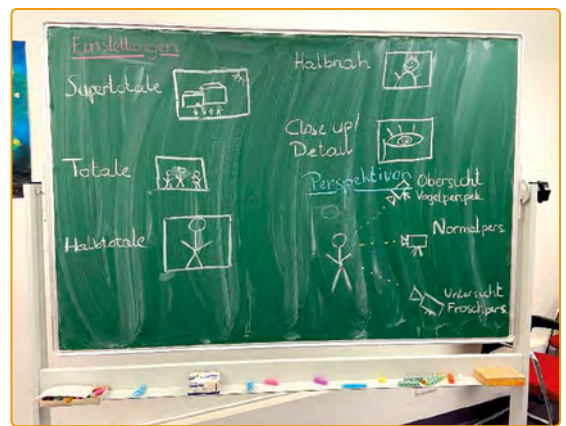 Einstellungen
Supertotale
Totale
Halbtotale
Halbnah
Close up/
Detail
Perspektiven
Obersicht
Vogelperspek.
Normalpers.
Untersicht
Froschpers.